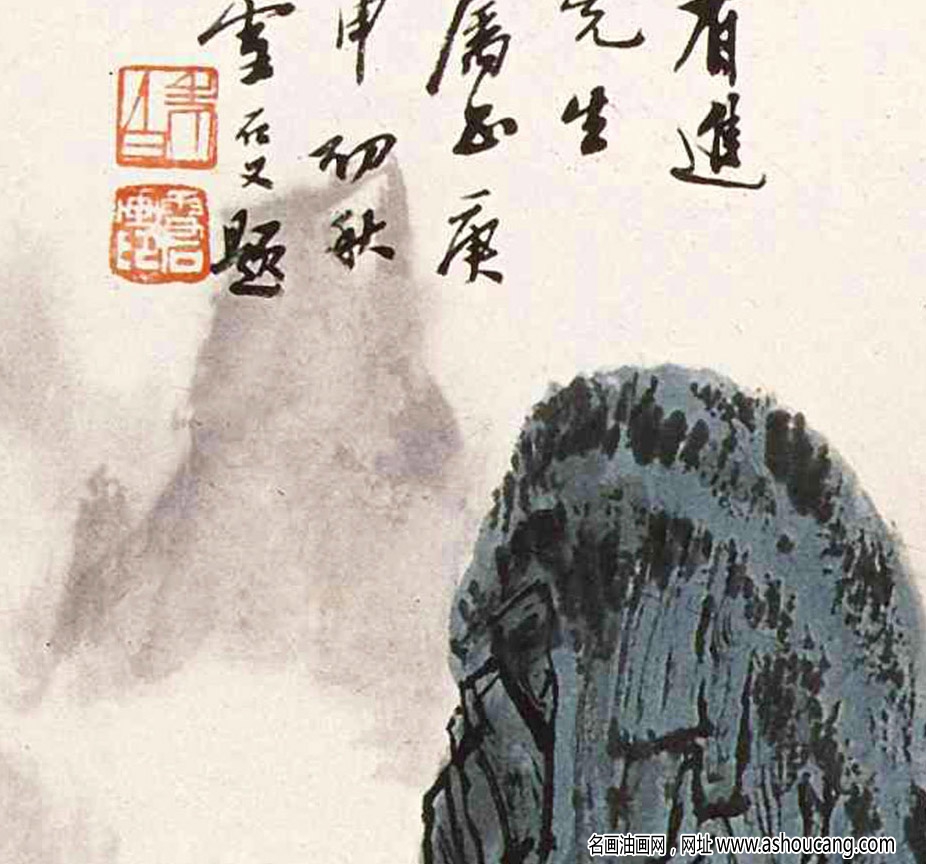 有進
先生
属正庚
申初秋
雪石又題
名画油画网，网址 www.ashoucang.com